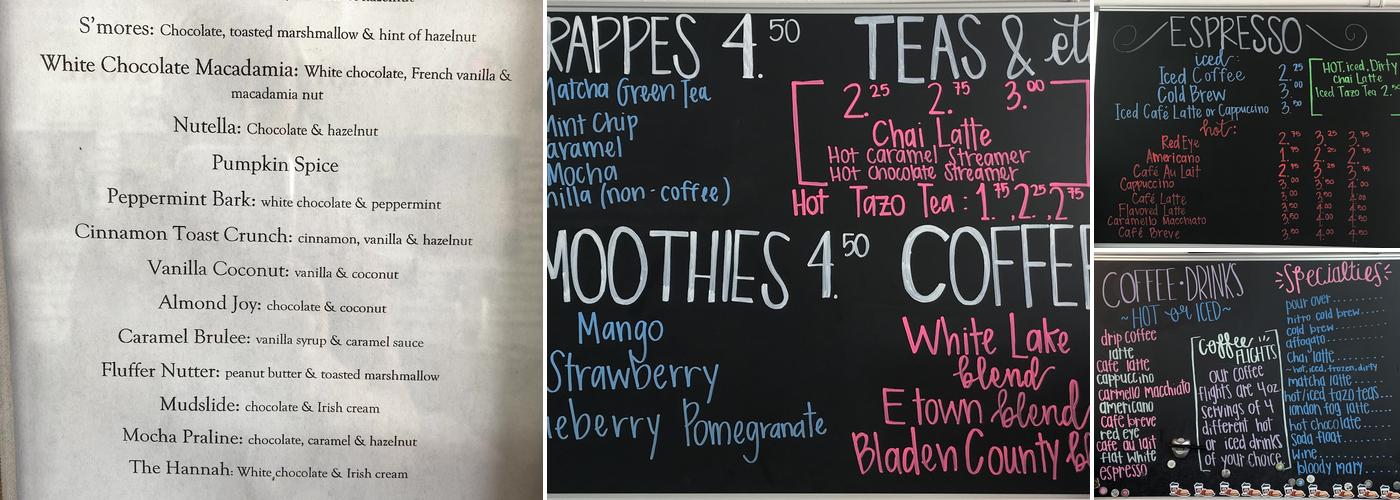 S'mores: Chocolate, toasted marshmallow & hint of hazelnut
White Chocolate Macadamia: White chocolate, French vanilla &
macadamia nut
Nutella: Chocolate & hazelnut
Pumpkin Spice
Peppermint Bark: white chocolate & peppermint
Cinnamon Toast Crunch: cinnamon, vanilla & hazelnut
Vanilla Coconut: vanilla & coconut
Almond Joy: chocolate & coconut
Caramel Brulee: vanilla syrup & caramel sauce
Fluffer Nutter: peanut butter & toasted marshmallow
Mudslide: chocolate & Irish cream
Mocha Praline: chocolate, caramel & hazelnut
The Hannah: White chocolate & Irish cream
RAPPES 4.50
Matcha Green Tea
Mint Chip
aramel
Mocha
nilla (non-coffee)
TEAS & etc
2.25 2.75 3.00
Chai Latte
Hot Caramel Streamer
Hot Chocolate Streamer
Hot Tazo Tea: 1.75, 2.25, 2.75
MOOTHIES 4.50
Mango
Strawberry
ueberry Pomegranate
COFFEE
White Lake
blend
Etown blend
Bladen County bl
ESPRESSO
iced:
Iced Coffee 2.25
Cold Brew 3.00
Iced Café Latte or Cappuccino 3.50
HOT, iced, Dirty
Chai Latte
Iced Tazo Tea 2.50
hot:
Red Eye 2.75 3.25 3.75
Americano 1.75 2.25 2.75
Café Au Lait
Cappuccino
Café Latte
Flavored Latte
Caramello Macchiato
Café Breve
COFFEE • DRINKS
~ HOT or ICED ~
drip coffee
latte
cafe latte
cappuccino
carmello macchiato
americano
cafe breve
red eye
cafe au lait
flat white
espresso
coffee
FLIGHTS
our coffee
flights are 4oz
servings of 4
different hot
or iced drinks
of your choice
Specialties
pour over........
nitro cold brew....
cold brew........
affogato........
chai latte........
~hot, iced, frozen, dirty
matcha latte.....
hot/iced tazo teas...
london fog latte....
hot chocolate......
soda float........
wine.........
bloody mary.....